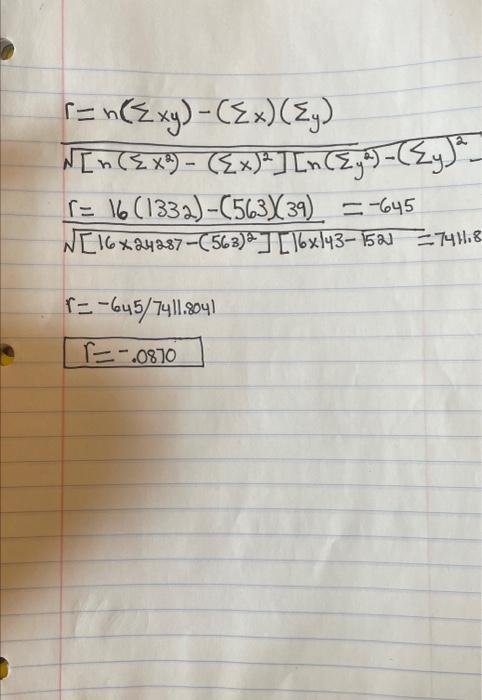 r = n(Σxy) - (Σx)(Σy)
√[n(Σx²) - (Σx)²][n(Σy²) - (Σy)²
r = 16(1332) - (563)(39) = -645
√[16x24287-(563)²][16x143-1521 = 7411.8
r = -645/7411.8041
r = -.0870